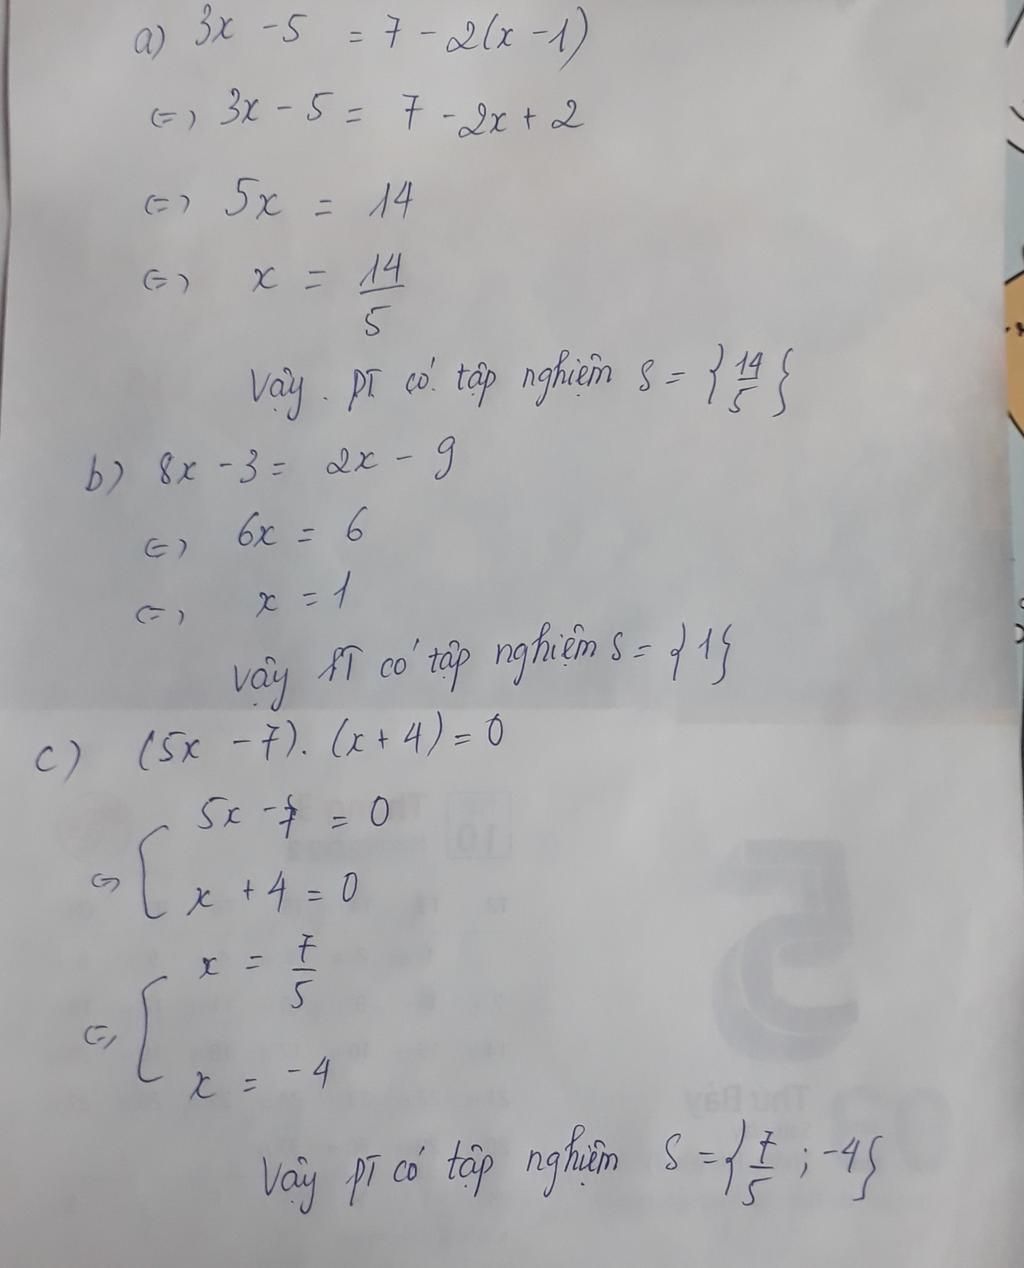 a) 3x - 5 = 7 - 2(x - 1)
<=> 3x - 5 = 7 - 2x + 2
<=> 5x = 14
<=> x = 14/5
Vậy. PT có tập nghiệm S = {14/5}
b) 8x - 3 = 2x - 9
<=> 6x = 6
<=> x = 1
Vậy PT có tập nghiệm S = {1}
c) (5x - 7). (x + 4) = 0
<=> [ 5x - 7 = 0
x + 4 = 0
<=> [ x = 7/5
x = -4
Vậy PT có tập nghiệm S = {7/5 ; -4}